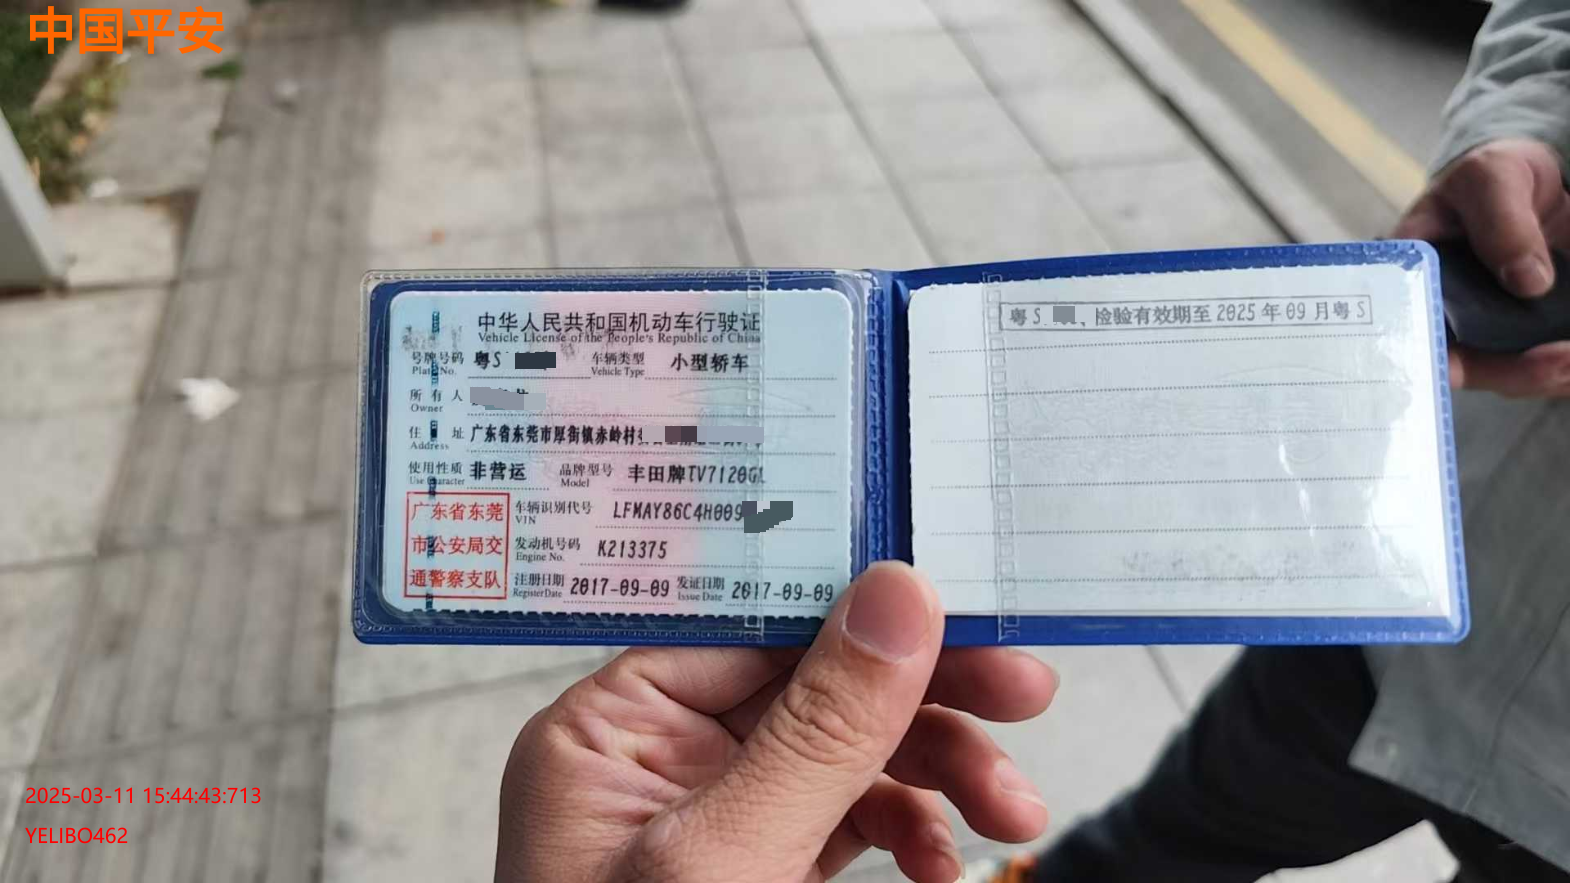 中国平安
中华人民共和国机动车行驶证
Vehicle License of the People's Republic of China
号牌号码 粤S 车辆类型 小型轿车
Plate No. Vehicle Type
所有人
Owner
住址 广东省东莞市厚街镇赤岭村
Address
使用性质 非营运 品牌型号 丰田牌TV7120GL
Use Character Model
广东省东莞
市公安局交
通警察支队
车辆识别代号 LFMAY86C4H009
VIN
发动机号码 K213375
Engine No.
注册日期 2017-09-09 发证日期 2017-09-09
Register Date Issue Date
粤S 检验有效期至2025年09月粤S
2025-03-11 15:44:43:713
YELIBO462